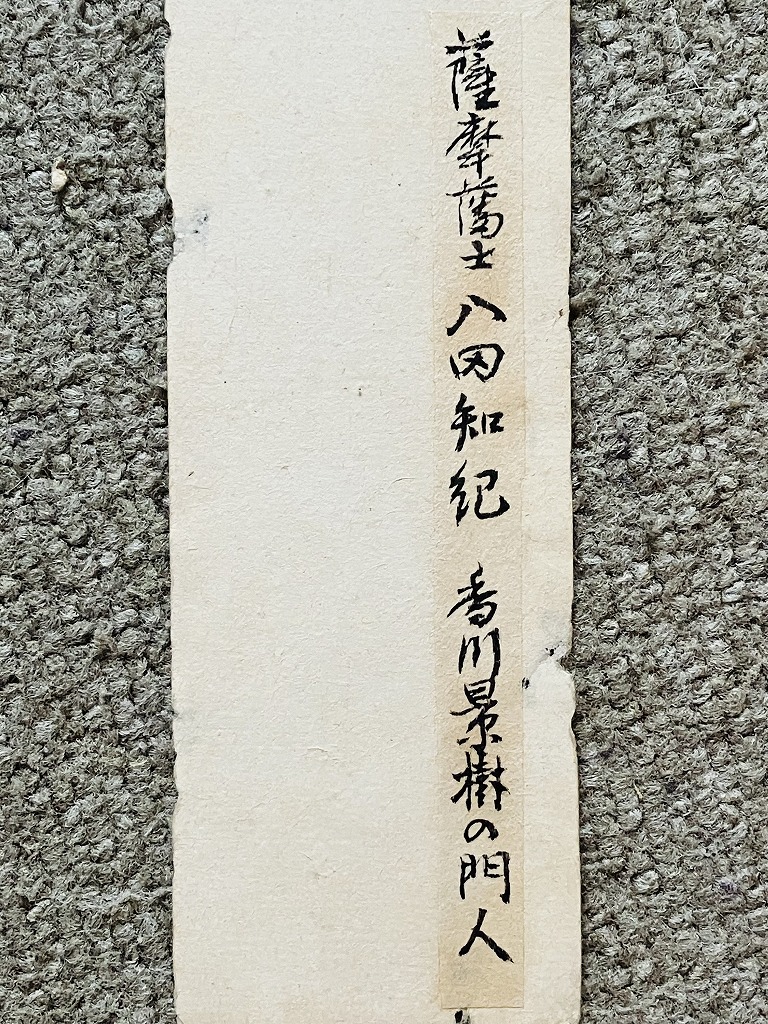 薩摩藩士 八田知紀 香川景樹の門人